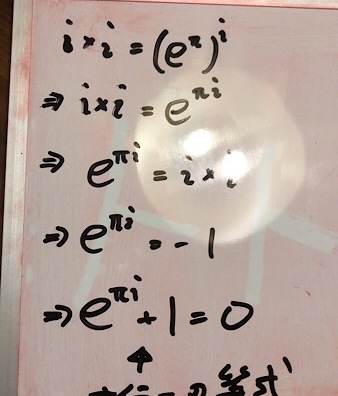 i×i = (e^π)^i
⇒ i×i = e^πi
⇒ e^πi = i×i
⇒ e^πi = -1
⇒ e^πi + 1 = 0
↑